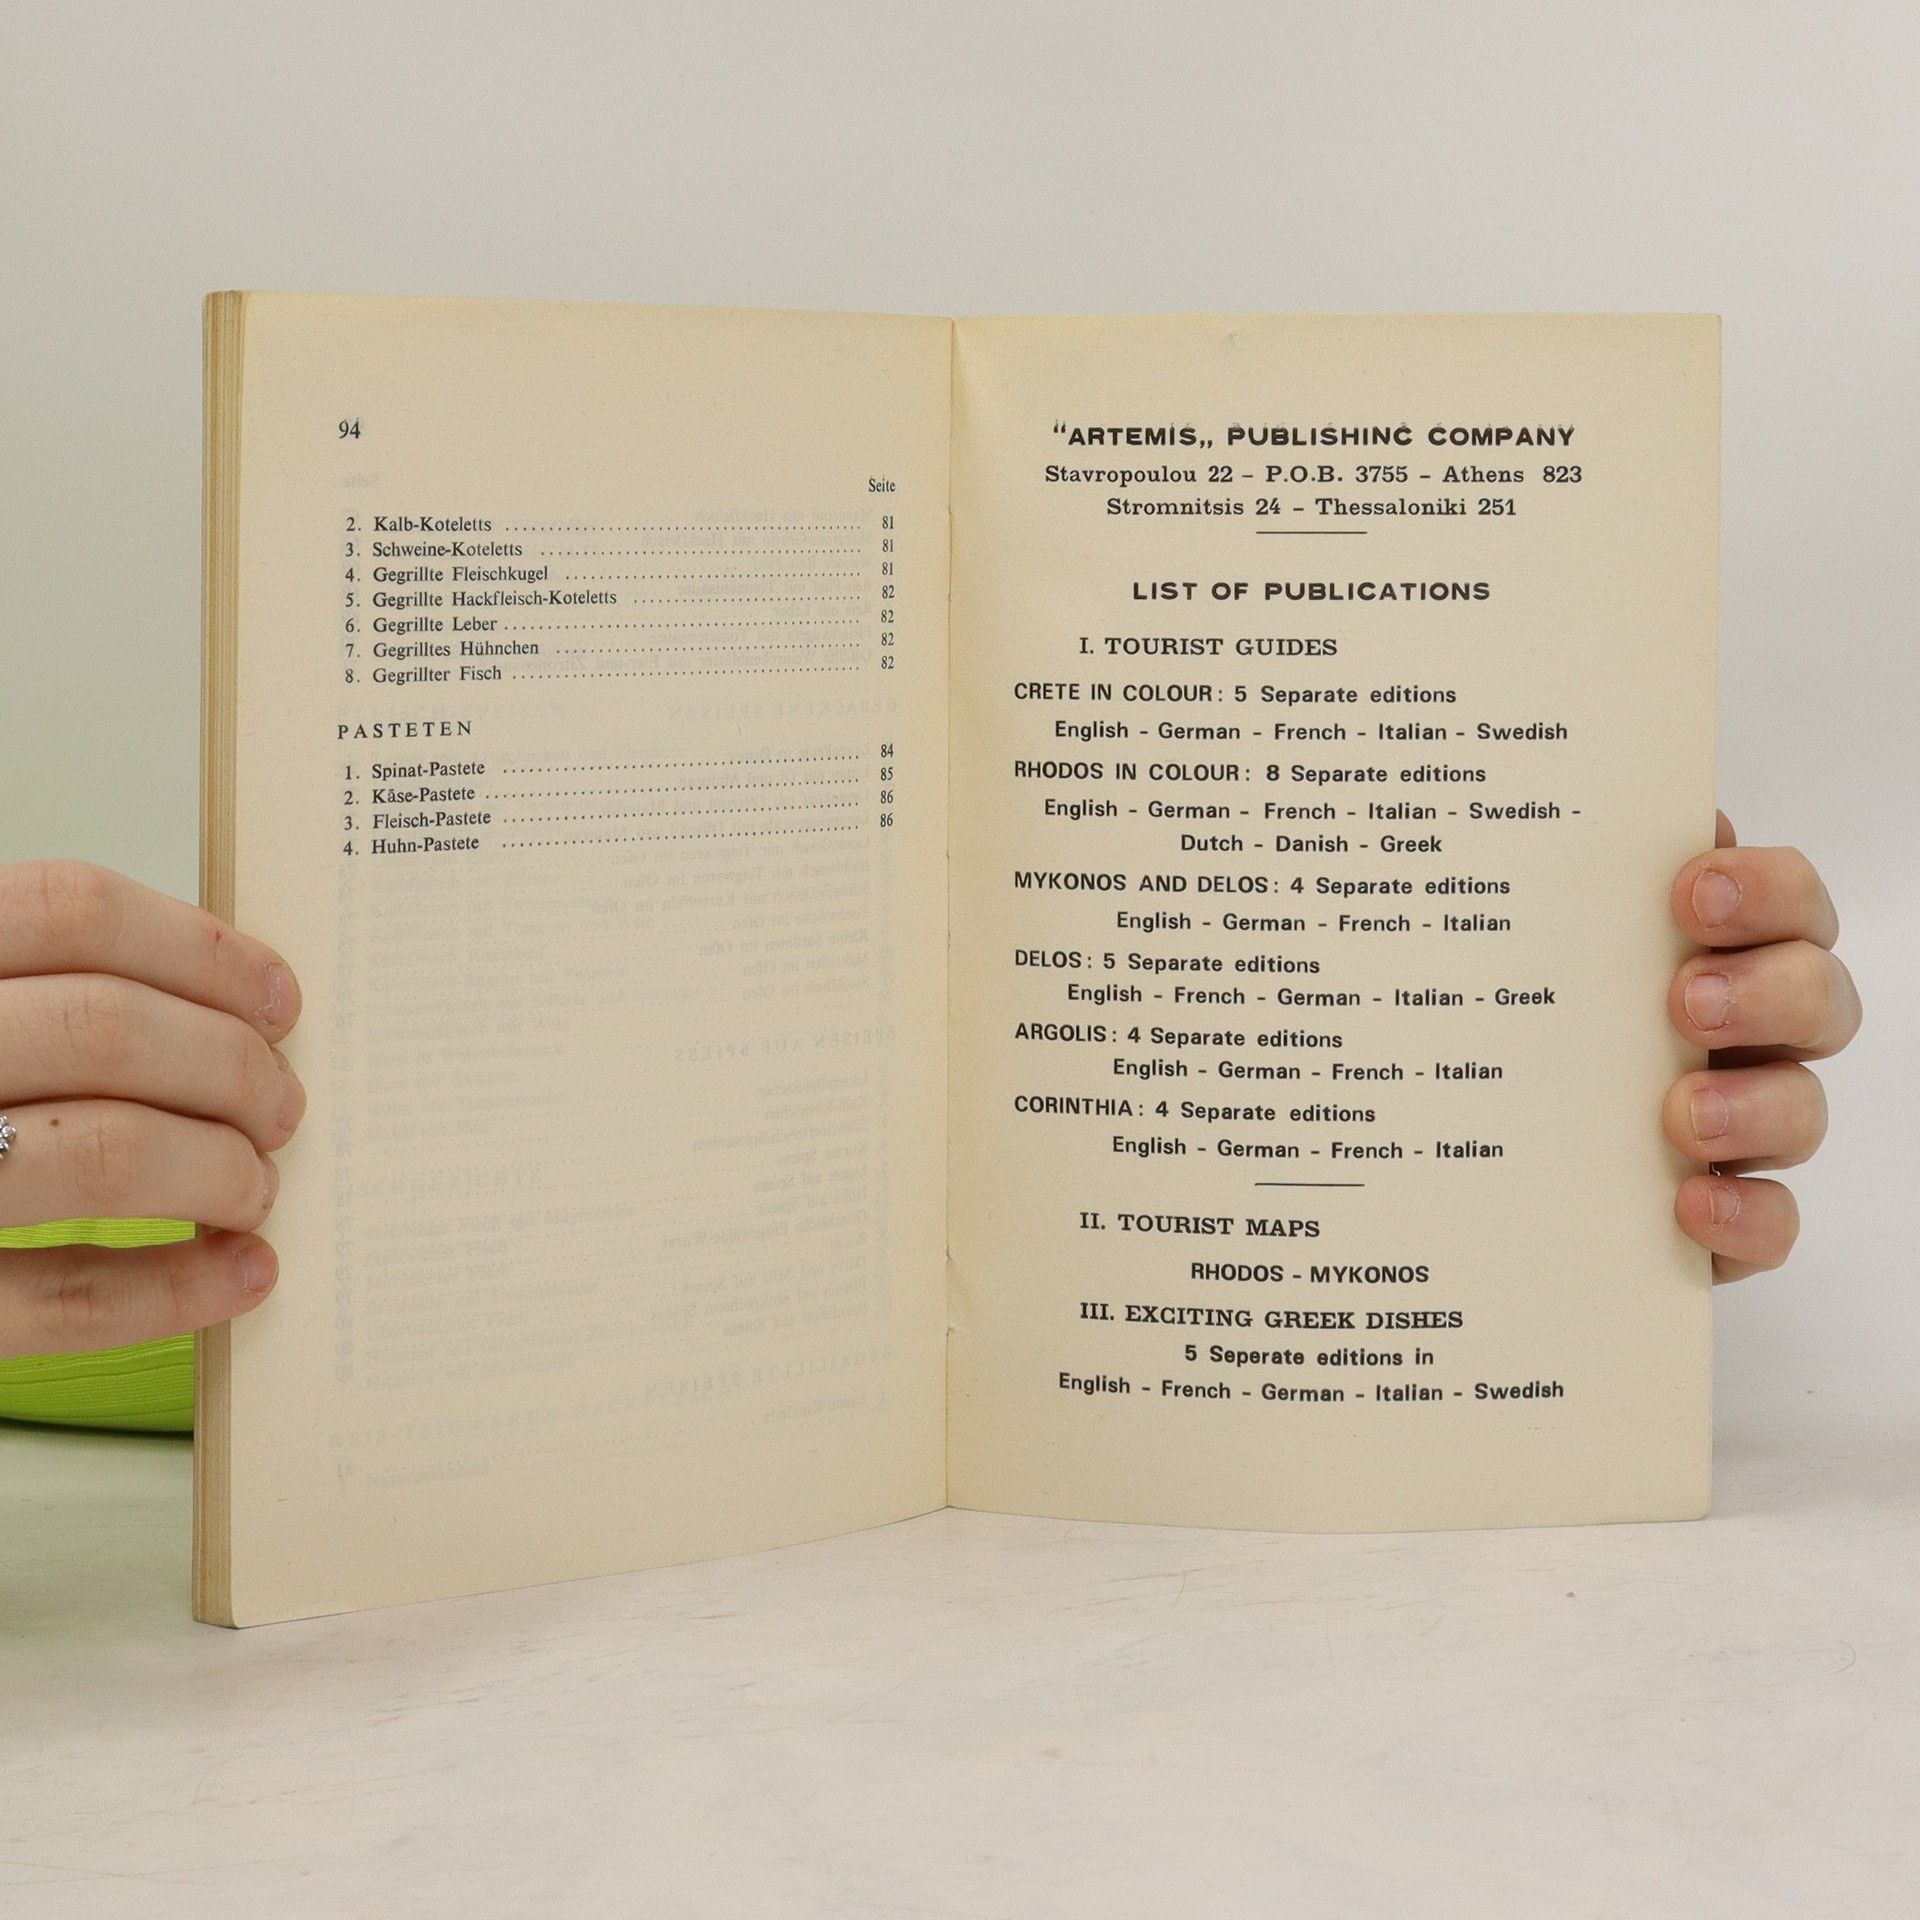 94
Seite
2. Kalb-Koteletts ........................................ 81
3. Schweine-Koteletts .................................... 81
4. Gegrillte Fleischkugel ................................. 81
5. Gegrillte Hackfleisch-Koteletts .......................... 82
6. Gegrillte Leber ........................................ 82
7. Gegrilltes Hühnchen ................................... 82
8. Gegrillter Fisch ....................................... 82
PASTETEN
1. Spinat-Pastete ........................................ 84
2. Käse-Pastete .......................................... 85
3. Fleisch-Pastete ........................................ 86
4. Huhn-Pastete ......................................... 86
"ARTEMIS„ PUBLISHINC COMPANY
Stavropoulou 22 – P.O.B. 3755 – Athens 823
Stromnitsis 24 – Thessaloniki 251
LIST OF PUBLICATIONS
I. TOURIST GUIDES
CRETE IN COLOUR: 5 Separate editions
English - German - French - Italian - Swedish
RHODOS IN COLOUR: 8 Separate editions
English - German - French - Italian - Swedish -
Dutch - Danish - Greek
MYKONOS AND DELOS: 4 Separate editions
English - German - French - Italian
DELOS: 5 Separate editions
English - French - German - Italian - Greek
ARGOLIS: 4 Separate editions
English - German - French - Italian
CORINTHIA: 4 Separate editions
English - German - French - Italian
II. TOURIST MAPS
RHODOS - MYKONOS
III. EXCITING GREEK DISHES
5 Seperate editions in
English - French - German - Italian - Swedish